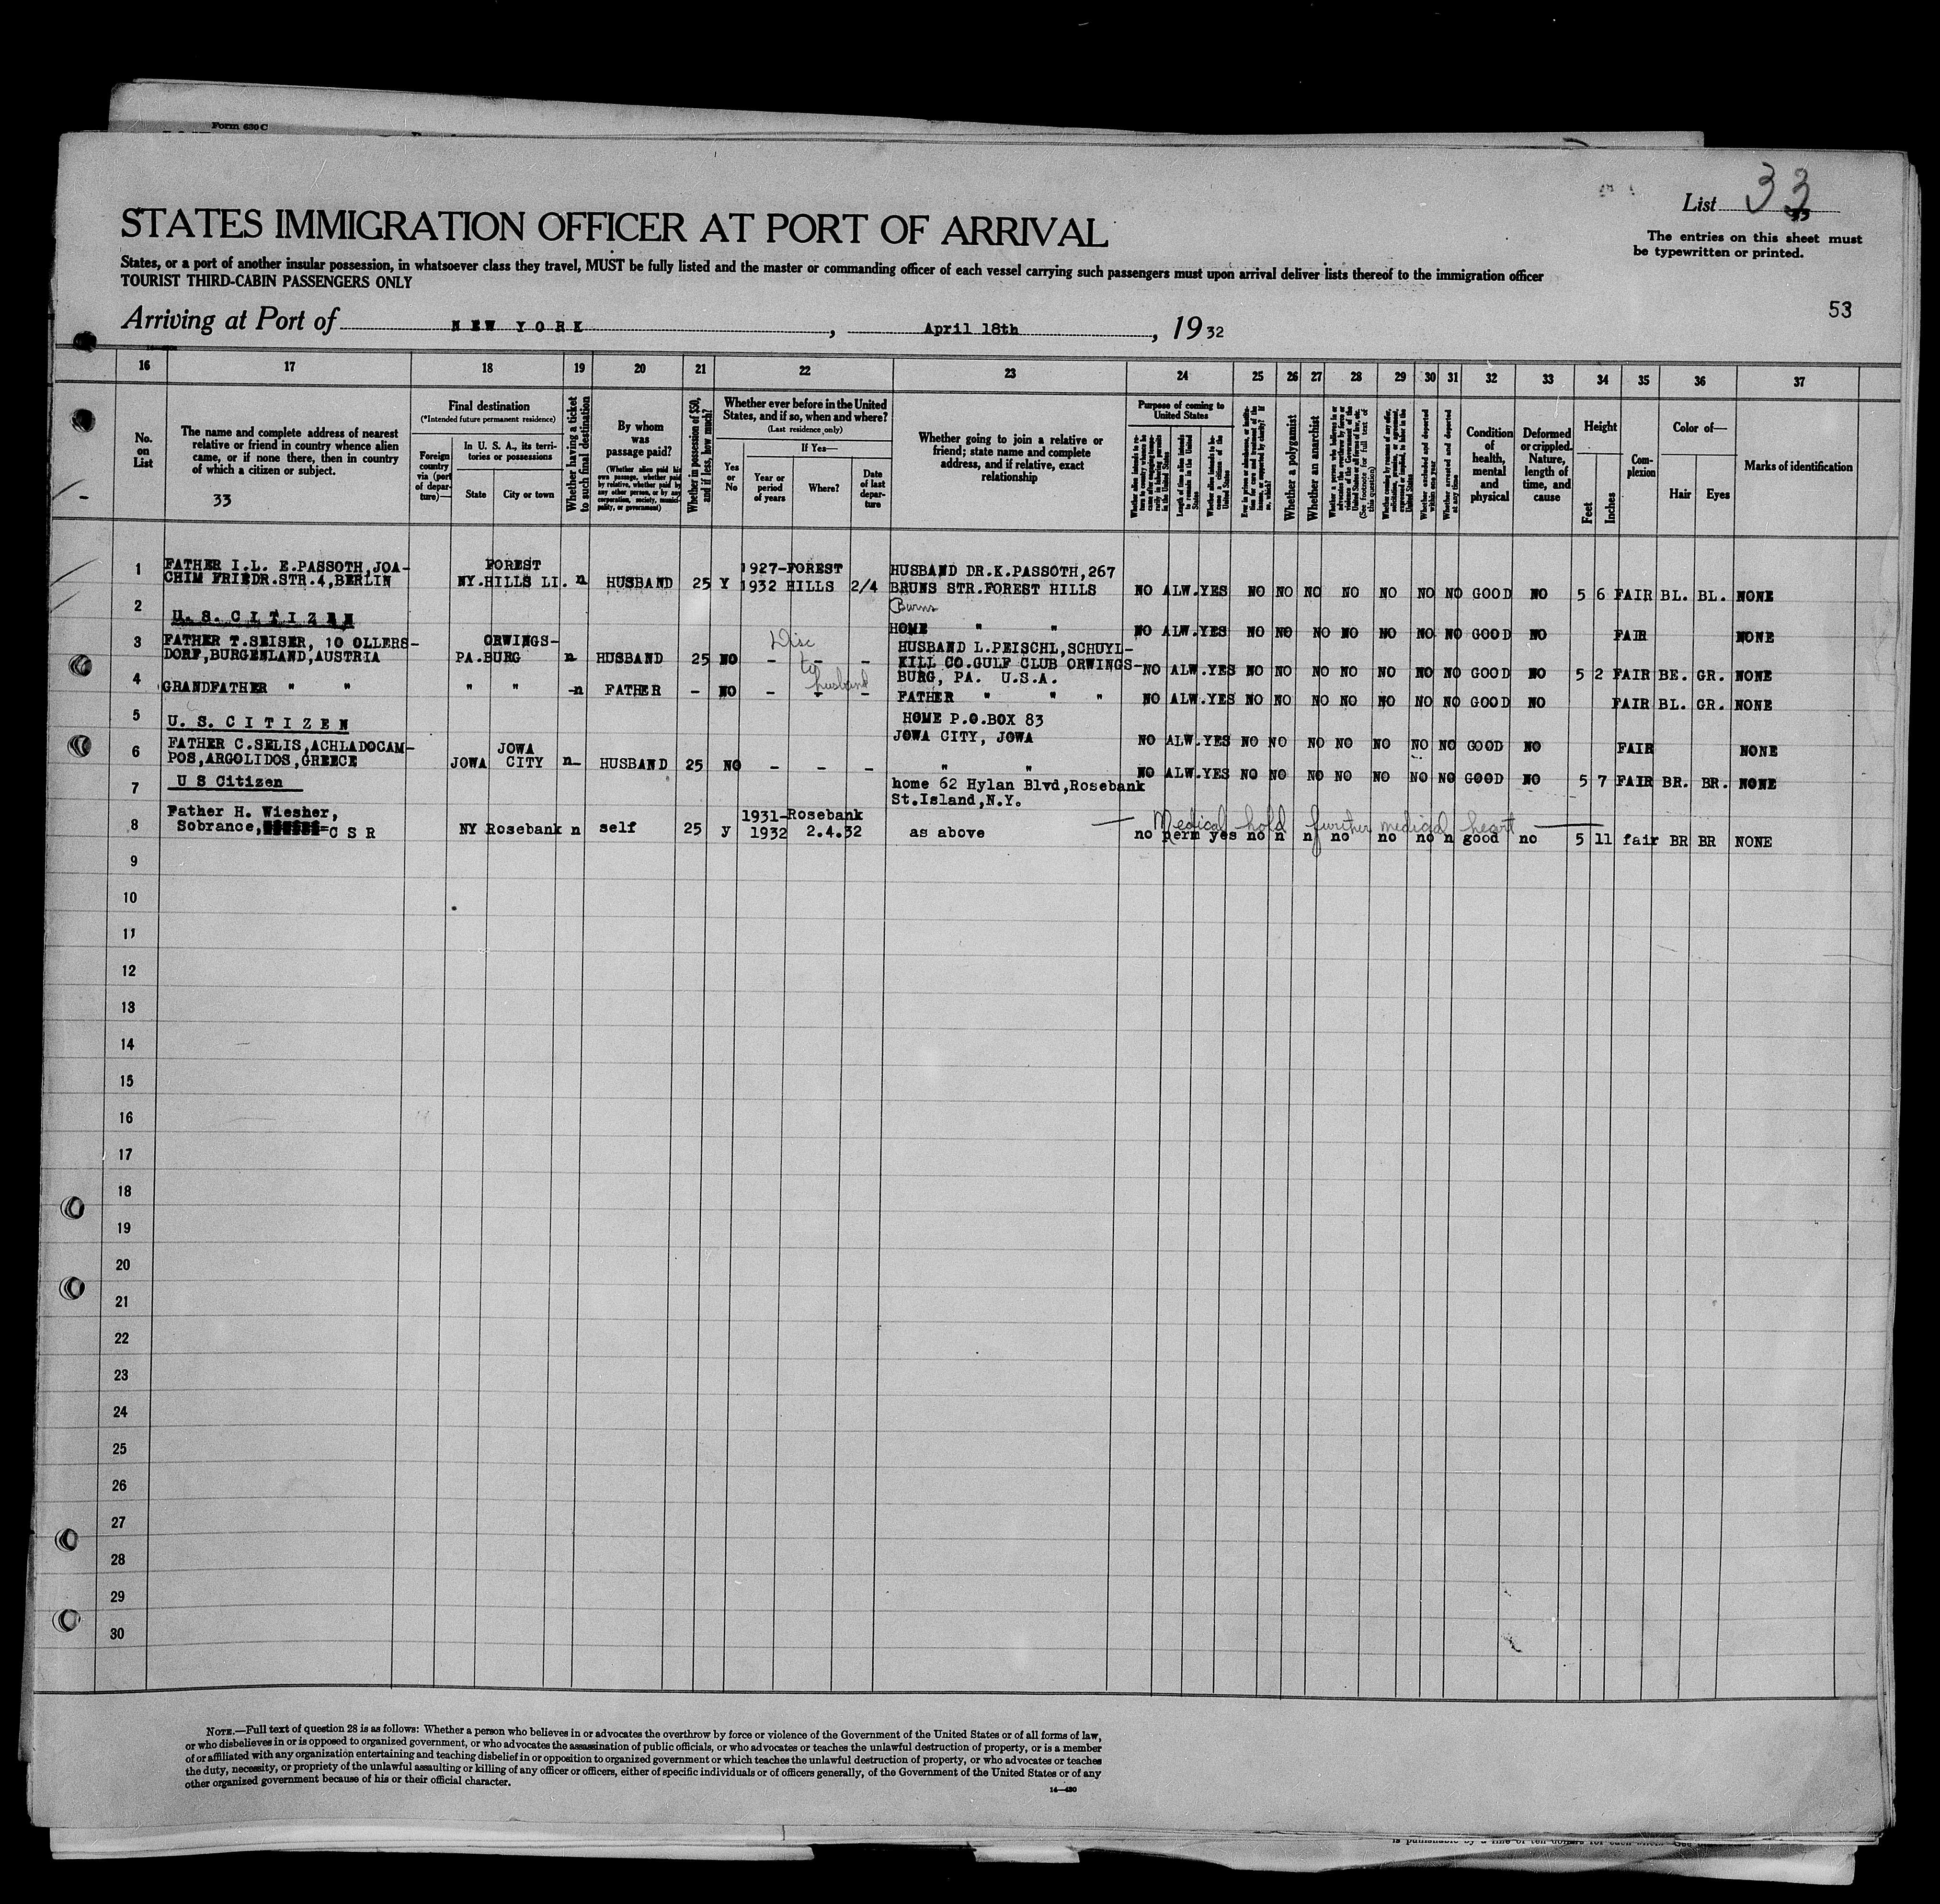 Form 630 C
List 33
33
The entries on this sheet must
be typewritten or printed.
STATES IMMIGRATION OFFICER AT PORT OF ARRIVAL
States, or a port of another insular possession, in whatsoever class they travel, MUST be fully listed and the master or commanding officer of each vessel carrying such passengers must upon arrival deliver lists thereof to the immigration officer
TOURIST THIRD-CABIN PASSENGERS ONLY
53
Arriving at Port of NEW YORK, April 18th, 1932
16 17 18 19 20 21 22 23 24 25 26 27 28 29 30 31 32 33 34 35 36 37
No.
on
List
The name and complete address of nearest
relative or friend in country whence alien
came, or if none there, then in country
of which a citizen or subject.
33
Final destination
(*Intended future permanent residence)
Foreign
country
via (port
of depar-
ture)—
In U. S. A., its terri-
tories or possessions
State City or town
Whether having a ticket
to such final destination
By whom
was
passage paid?
(Whether alien paid his
own passage, whether paid
by relative, whether paid by
any other person, or by any
corporation, society, munici-
pality, or government)
Whether in possession of $50,
and if less, how much?
Whether ever before in the United
States, and if so, when and where?
(Last residence only)
Yes
or
No
If Yes—
Year or
period
of years
Where?
Date
of last
depar-
ture
Whether going to join a relative or
friend; state name and complete
address, and if relative, exact
relationship
Purpose of coming to
United States
Whether a polygamist
Whether an anarchist
(See footnote for full text of
this question)
Whether excluded and deported
within one year
Whether arrested and deported
at any time
Condition
of
health,
mental
and
physical
Deformed
or crippled.
Nature,
length of
time, and
cause
Height
Feet Inches
Com-
plexion
Color of—
Hair Eyes
Marks of identification
1 FATHER I.L. E.PASSOTH,JOA- FOREST 1927-FOREST HUSBAND DR.K.PASSOTH,267
CHIM FRIEDR.STR.4,BERLIN NY.HILLS LI. n HUSBAND 25 Y 1932 HILLS 2/4 BRUNS STR.FOREST HILLS NO ALW.YES NO NO NO NO NO NO NO GOOD NO 5 6 FAIR BL. BL. NONE
Burns
2 U.S.CITIZEN HOME " " NO ALW.YES NO NO NO NO NO NO NO GOOD NO FAIR NONE
3 FATHER T.SEISER, 10 OLLERS- ORWINGS- Disc HUSBAND L.PEISCHL,SCHUYL-
DORF,BURGENLAND,AUSTRIA PA.BURG n HUSBAND 25 NO - - - to KILL CO.GULF CLUB ORWINGS-
BURG, PA. U.S.A. NO ALW.YES NO NO NO NO NO NO NO GOOD NO 5 2 FAIR BE. GR. NONE
4 GRANDFATHER " " " " -n FATHER - NO - - - husband FATHER " " " NO ALW.YES NO NO NO NO NO NO NO GOOD NO FAIR BL. GR. NONE
5 U. S. C I T I Z E N HOME P.O.BOX 83
JOWA CITY, JOWA NO ALW.YES NO NO NO NO NO NO NO GOOD NO FAIR NONE
6 FATHER C.SELIS,ACHLADOCAM- JOWA
POS,ARGOLIDOS,GREECE JOWA CITY n- HUSBAND 25 NO - - - " " NO ALW.YES NO NO NO NO NO NO NO GOOD NO 5 7 FAIR BR. BR. NONE
7 U S Citizen home 62 Hylan Blvd,Rosebank
St.Island,N.Y.
Medical hold further medical heart
8 Father H. Wiesher, 1931-Rosebank
Sobrance, C S R NY Rosebank n self 25 y 1932 2.4.32 as above no perm yes no n n no no no n good no 5 11 fair BR BR NONE
9
10
11
12
13
14
15
16
17
18
19
20
21
22
23
24
25
26
27
28
29
30
NOTE.—Full text of question 28 is as follows: Whether a person who believes in or advocates the overthrow by force or violence of the Government of the United States or of all forms of law,
or who disbelieves in or is opposed to organized government, or who advocates the assassination of public officials, or who advocates or teaches the unlawful destruction of property, or is a member
of or affiliated with any organization entertaining and teaching disbelief in or opposition to organized government or which teaches the unlawful destruction of property, or who advocates or teaches
the duty, necessity, or propriety of the unlawful assaulting or killing of any officer or officers, either of specific individuals or of officers generally, of the Government of the United States or of any
other organized government because of his or their official character.
14—430